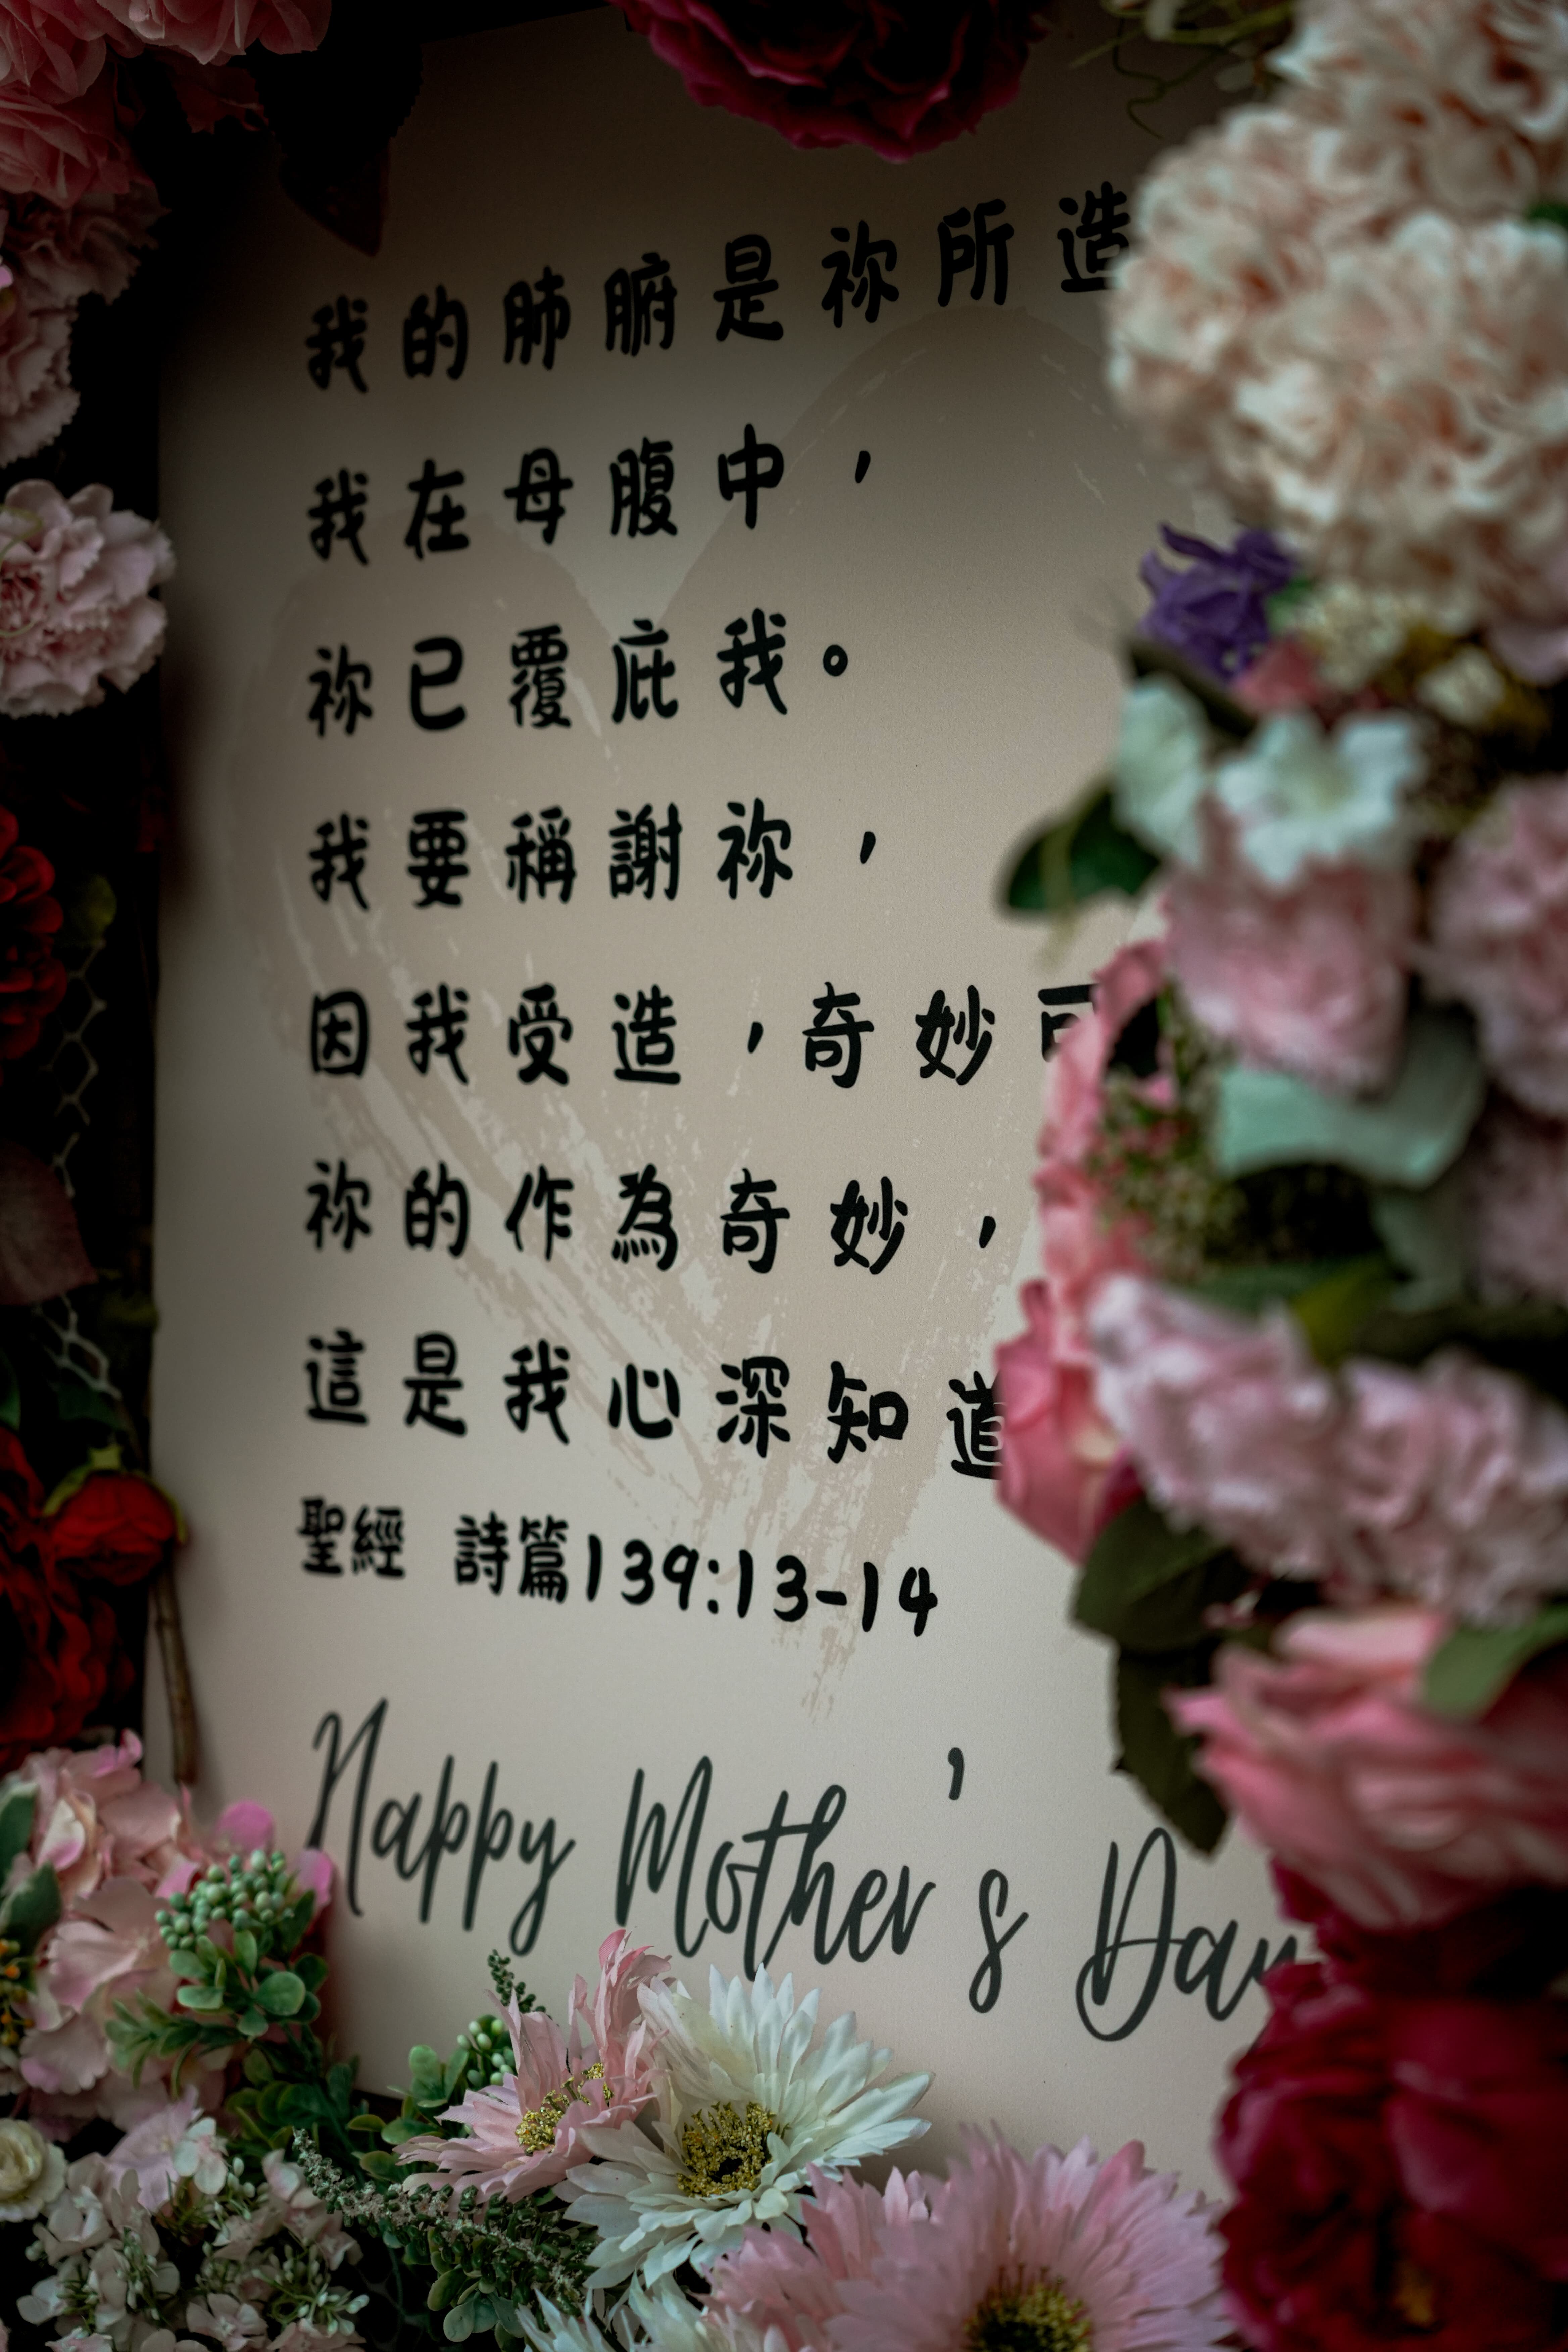 我的肺腑是祢所造
我在母腹中，
祢已覆庇我。
我要稱謝祢，
因我受造，奇妙
祢的作為奇妙，
這是我心深知道
聖經 詩篇139:13-14
Happy Mother's Day